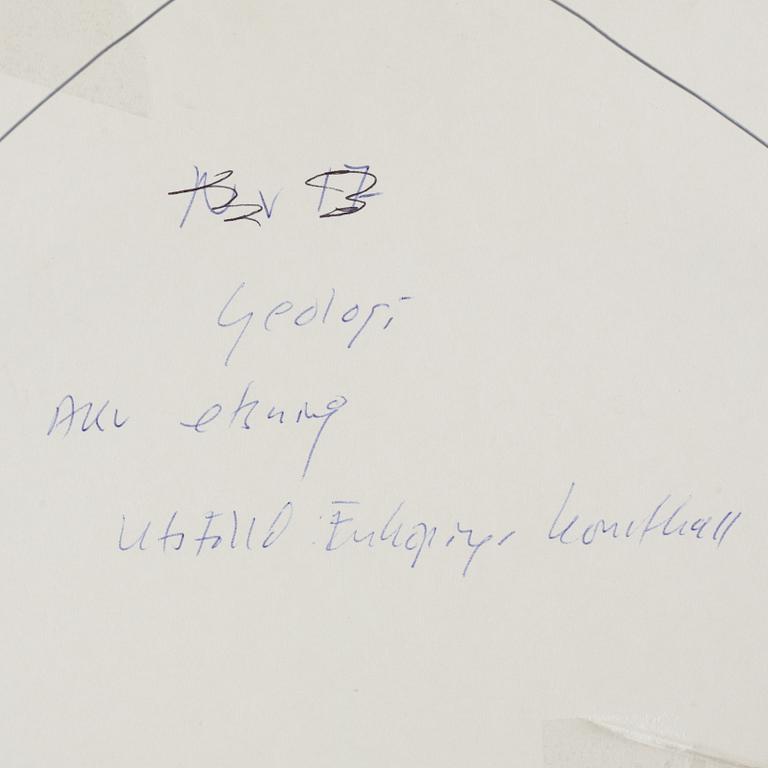 Geologi
AKV etsning
Utställd Enköpings konsthall